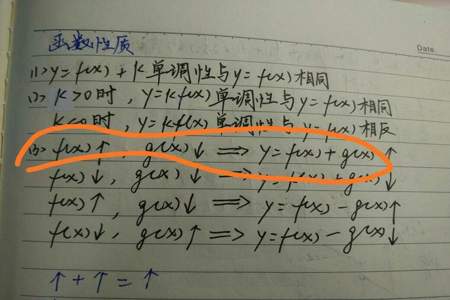 函数性质
Date
(1) y=f(x)+k 单调性与y=f(x)相同
(2) k>0时，y=kf(x)单调性与y=f(x)相同
k<0时，y=kf(x)单调性与y=f(x)相反
(3) f(x)↑，g(x)↓ ⟹ y=f(x)+g(x)↑
f(x)↓，g(x)↓ ⟹ y=f(x)+g(x)↓
f(x)↑，g(x)↓ ⟹ y=f(x)-g(x)↑
f(x)↓，g(x)↑ ⟹ y=f(x)-g(x)↓
↑+↑=↑